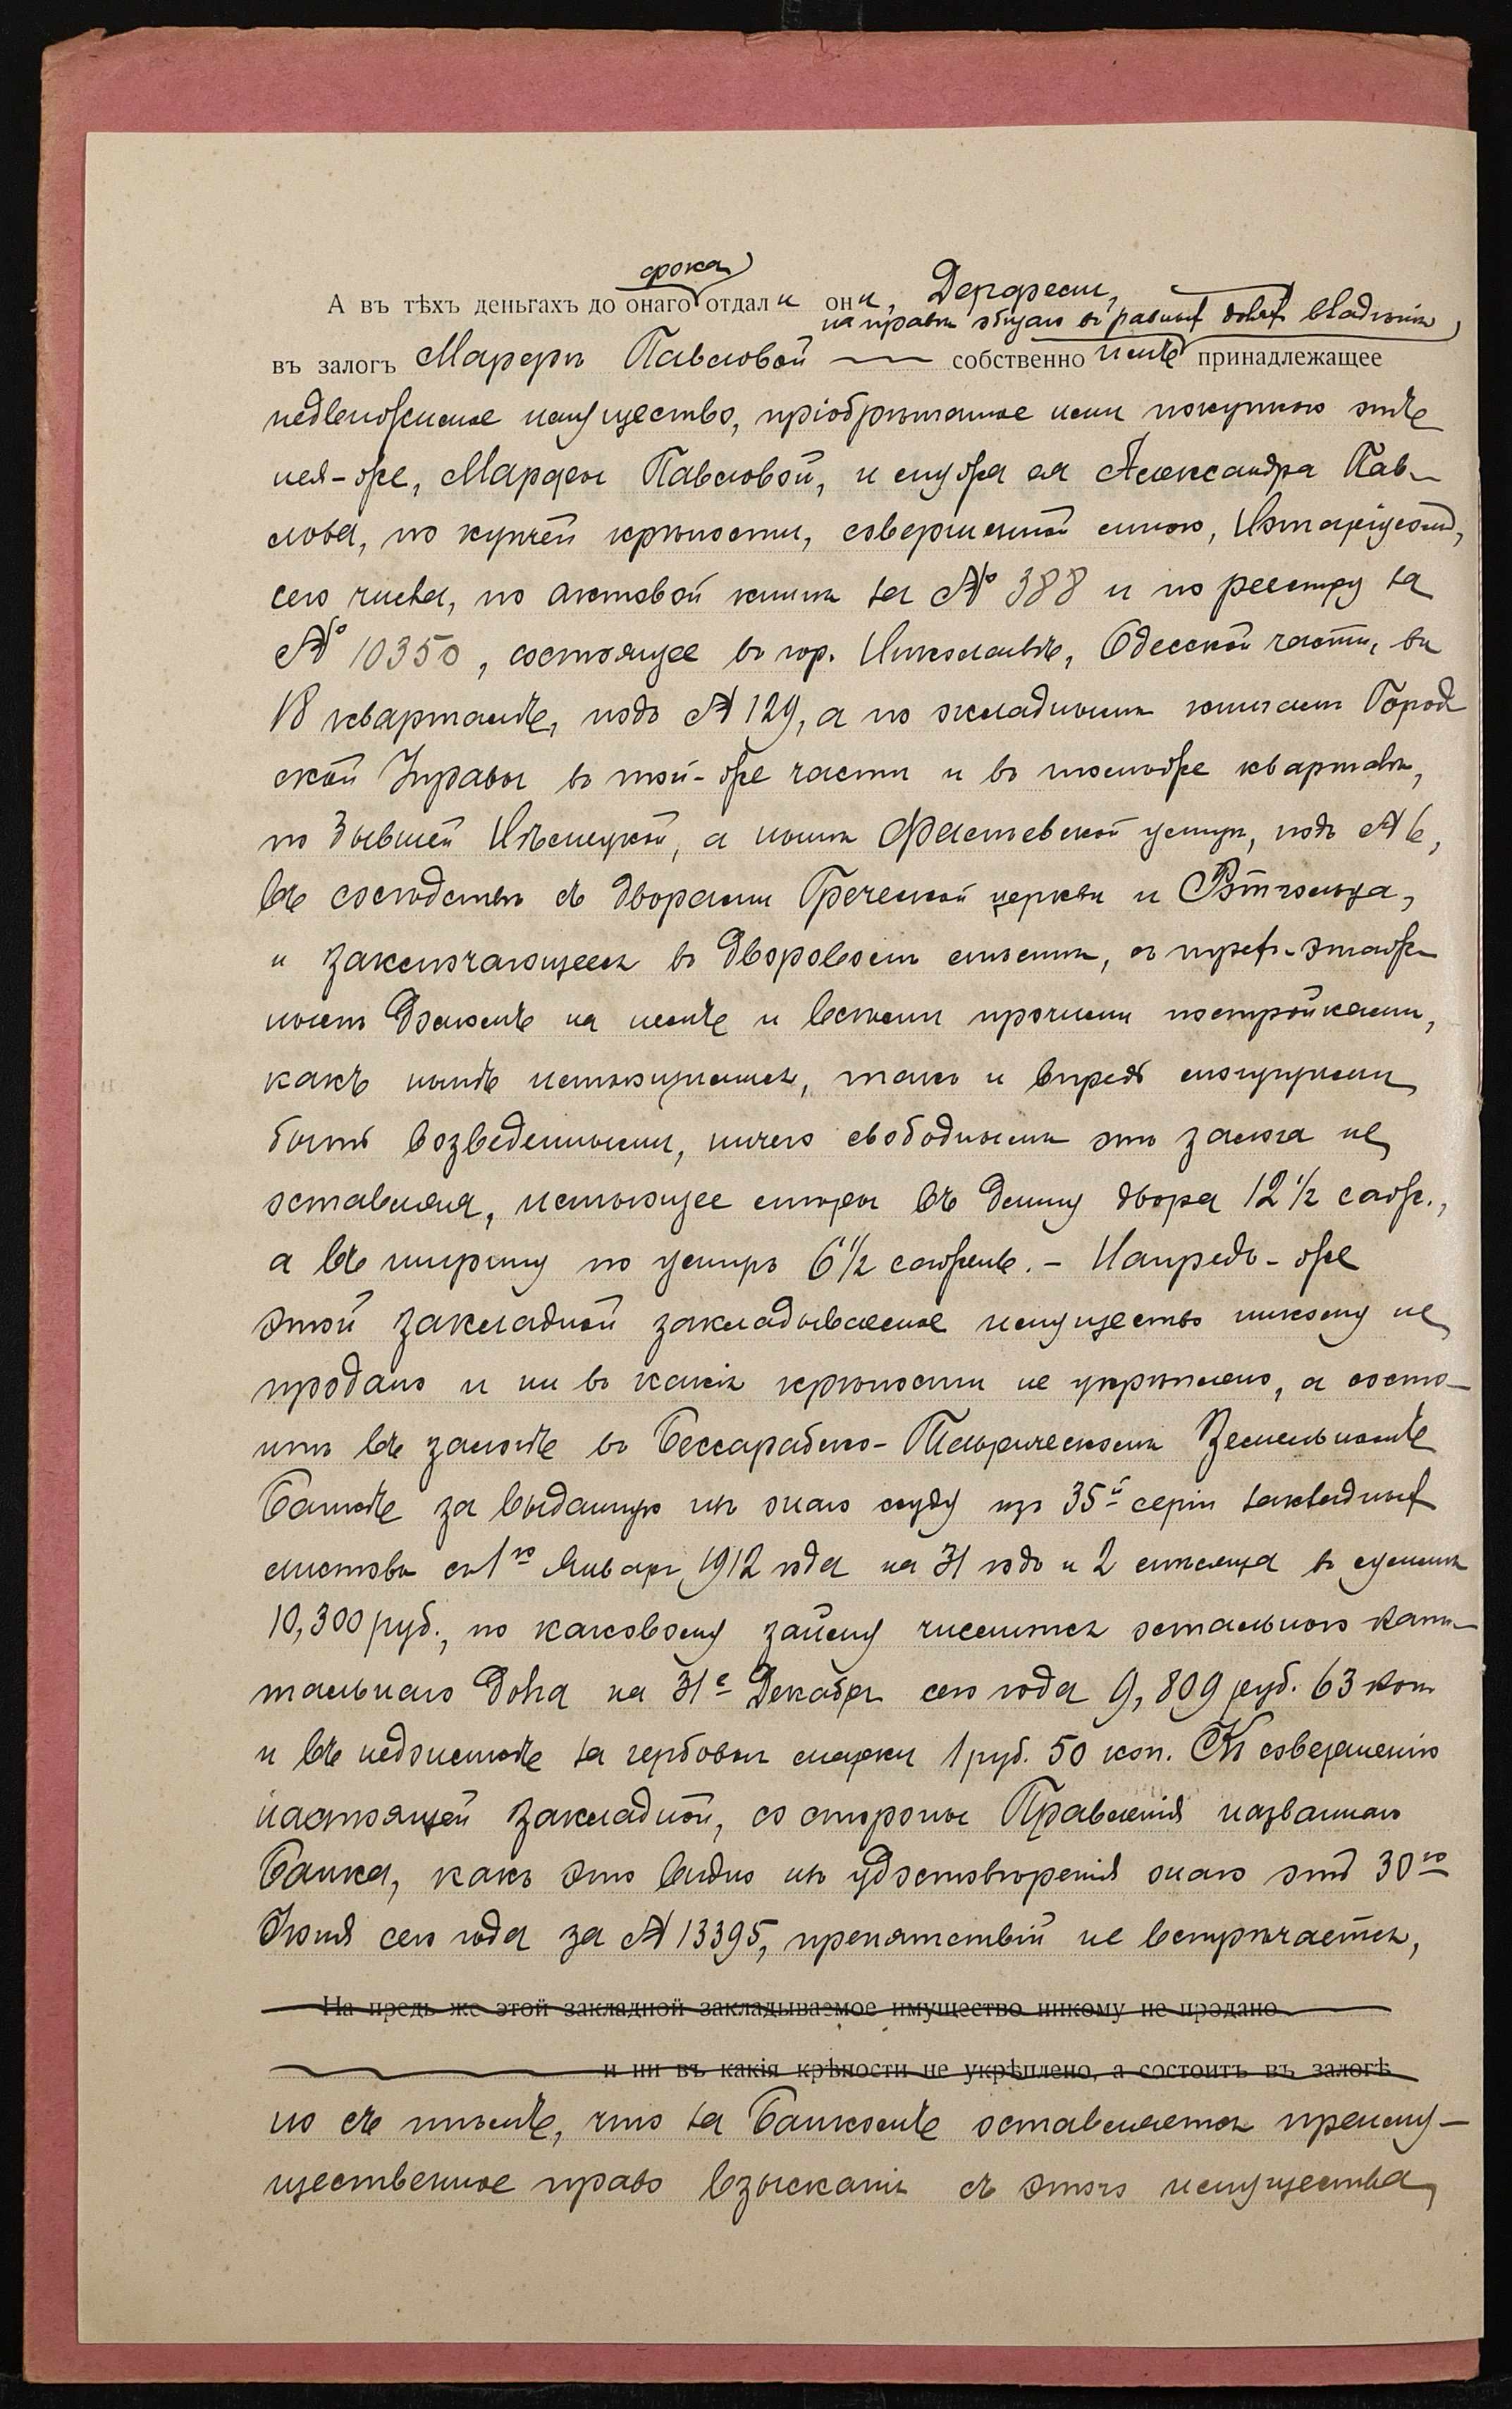 срока
А въ тѣхъ деньгахъ до онаго отдали они,
на правѣ общаго въ равныхъ доляхъ владѣнія
въ залогъ Марфѣ Павловой собственно имъ принадлежащее
недвижимое имущество, пріобрѣтенное ими покупкою отъ
нея-же, Марфы Павловой, и мужа ея Александра Пав-
лова, по купчей крѣпости, совершенной мною, Нотаріусомъ,
сего числа, по актовой книгѣ за № 388 и по реестру за
№ 10350, состоящее въ гор. Николаевѣ, Одесской части, въ
18 кварталѣ, подъ № 129, а по окладнымъ книгамъ Город
ской Управы въ той-же части и въ томъ же кварталѣ,
по бывшей Нѣмецкой, а нынѣ Фалѣевской улицѣ, подъ № 6,
въ сосѣдствѣ съ дворами Греческой церкви и
и заключающееся въ дворовомъ мѣстѣ, съ трехъ-этаж-
нымъ домомъ на немъ и всѣми прочими постройками,
какъ нынѣ имѣющимися, такъ и впредь могущими
быть возведенными, ничего свободнымъ отъ залога не
оставляя, имѣющее мѣры въ длину двора 12½ саж.,
а въ ширину по улицѣ 6½ сажень. - Напредь-же
этой закладной закладываемое имущество никому не
продано и ни въ какія крѣпости не укрѣплено, а состо-
итъ въ залогѣ въ Бессарабско-Таврическомъ Земельномъ
Банкѣ за выданную изъ онаго ссуду изъ 35й серіи закладныхъ
листовъ съ 1го Января 1912 года на 31 годъ и 2 мѣсяца въ суммѣ
10,300 руб., по каковому займу числится остальнаго капи-
тальнаго долга на 31е Декабря сего года 9,809 руб. 63 коп
и въ недоимкѣ за гербовыя марки 1 руб. 50 коп. Къ совершенію
настоящей закладной, со стороны Правленія названнаго
Банка, какъ это видно изъ удостовѣренія онаго отъ 30го
Іюня сего года за № 13395, препятствій не встрѣчается,
На предь же этой закладной закладываемое имущество никому не продано
и ни въ какія крѣпости не укрѣплено, а состоитъ въ залогѣ
но съ тѣмъ, что за Банкомъ оставляется преиму-
щественное право взысканія съ этого имущества,